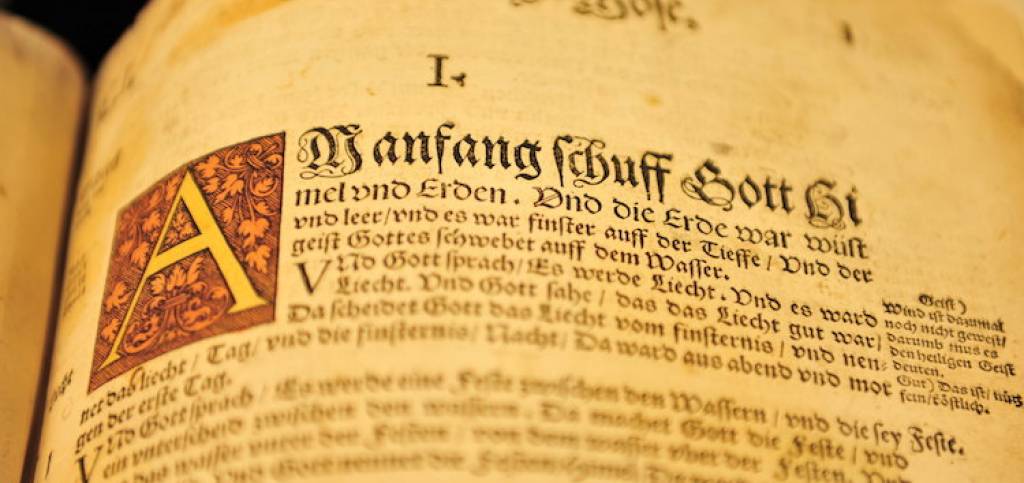 Mose.
I.
AM anfang schuff Gott Hi
mel vnd Erden. Vnd die Erde war wüst
vnd leer/vnd es war finster auff der Tieffe/ Vnd der
geist Gottes schwebet auff dem Wasser.
VNd Gott sprach/ Es werde Liecht. Vnd es ward
Liecht. Vnd Gott sahe/ das das Liecht gut war/
Da scheidet Gott das Liecht vom finsternis/ vnd nen⸗
net das liecht/ Tag/ vnd die finsternis/ Nacht/ Da ward aus abend vnd mor
gen der erste Tag.
VNd Gott sprach/ Es werde eine Feste zwischen den Wassern/ vnd die sey
ein vnterscheid zwischen den wassern. Da machet Gott die Feste/ vnd
das wasser vnter der Festen/ von dem wasser vber der Festen, Vnd
Geist)
Wind ist dazumal
noch nicht gewest/
darumb mus es
den heiligen Geist
deuten.
Gut) Das ist/
fein/köstlich.
Feste.